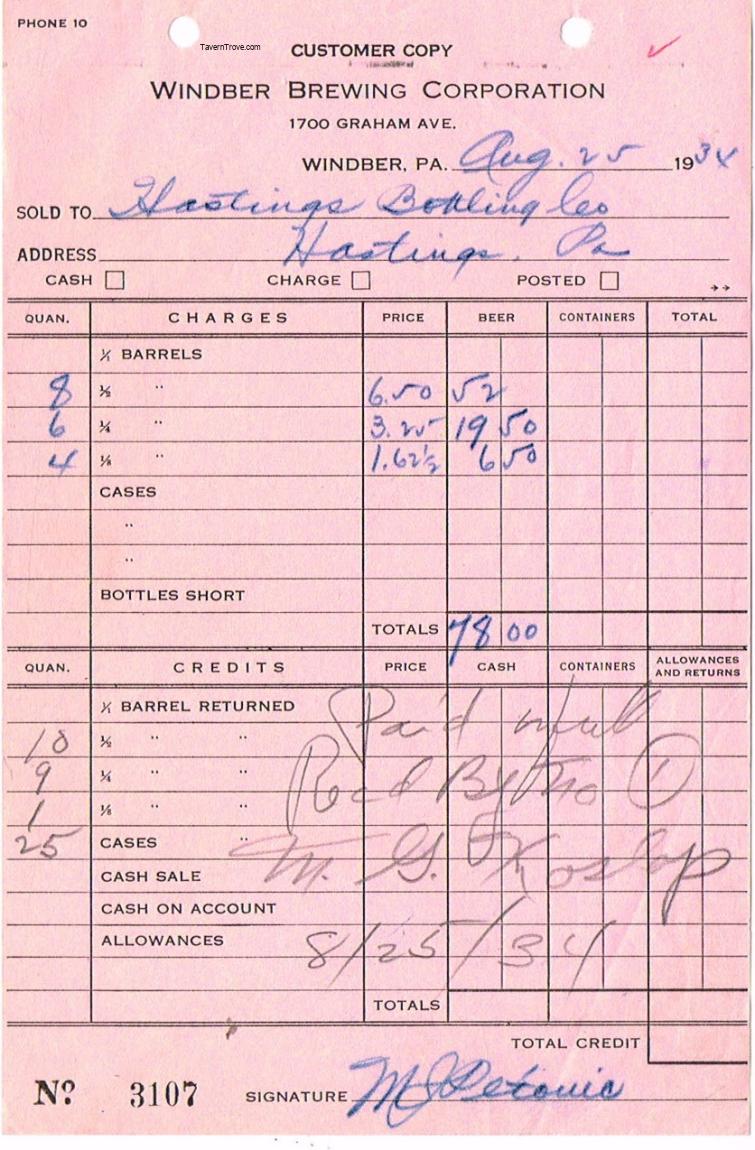 PHONE 10
TavernTrove.com
CUSTOMER COPY
WINDBER BREWING CORPORATION
1700 GRAHAM AVE.
WINDBER, PA. Aug. 25 1934
SOLD TO Hastings Bottling Co
ADDRESS Hastings. Pa
CASH CHARGE POSTED
QUAN. CHARGES PRICE BEER CONTAINERS TOTAL
1/1 BARRELS
8 1/2 " 6.50 52
6 1/4 " 3.25 19 50
4 1/8 " 1.62 1/2 6 50
CASES
"
"
BOTTLES SHORT
TOTALS 78 00
QUAN. CREDITS PRICE CASH CONTAINERS ALLOWANCES AND RETURNS
1/1 BARREL RETURNED Paid
10 1/2 " "
9 1/4 " " Recd By
1 1/8 " "
25 CASES " M. G. Koslop
CASH SALE
CASH ON ACCOUNT
ALLOWANCES 8/25/34
TOTALS
TOTAL CREDIT
No. 3107 SIGNATURE M J Petonic